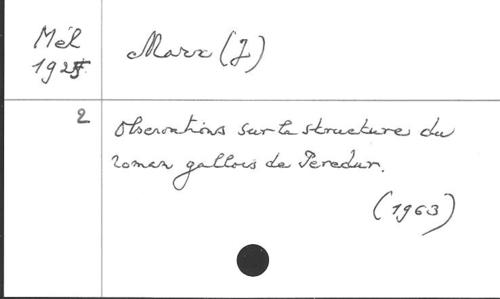 Mél
Marx (J)
2
Observations sur la structure du
roman gallois de Peredur.
(1963)